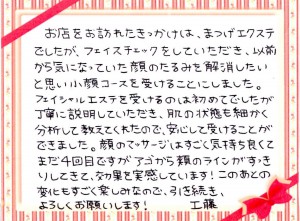 お店をお訪れたきっかけは、まつげエクステ
でしたが、フェイスチェックをしていただき、以前
から気になっていた顔のたるみを解消したい
と思い小顔コースを受けることにしました。
フェイシャルエステを受けるのは初めてでしたが
丁寧に説明していただき、肌の状態も細かく
分析して教えてくれたので、安心して受けることが
できました。顔のマッサージはすごく気持ち良くて
まだ4回目ですがアゴから顔のラインがすっき
りしてきて、効果を実感しています！このあとの
変化もすごく楽しみなので、引き続き、
よろしくお願いします！ 工藤